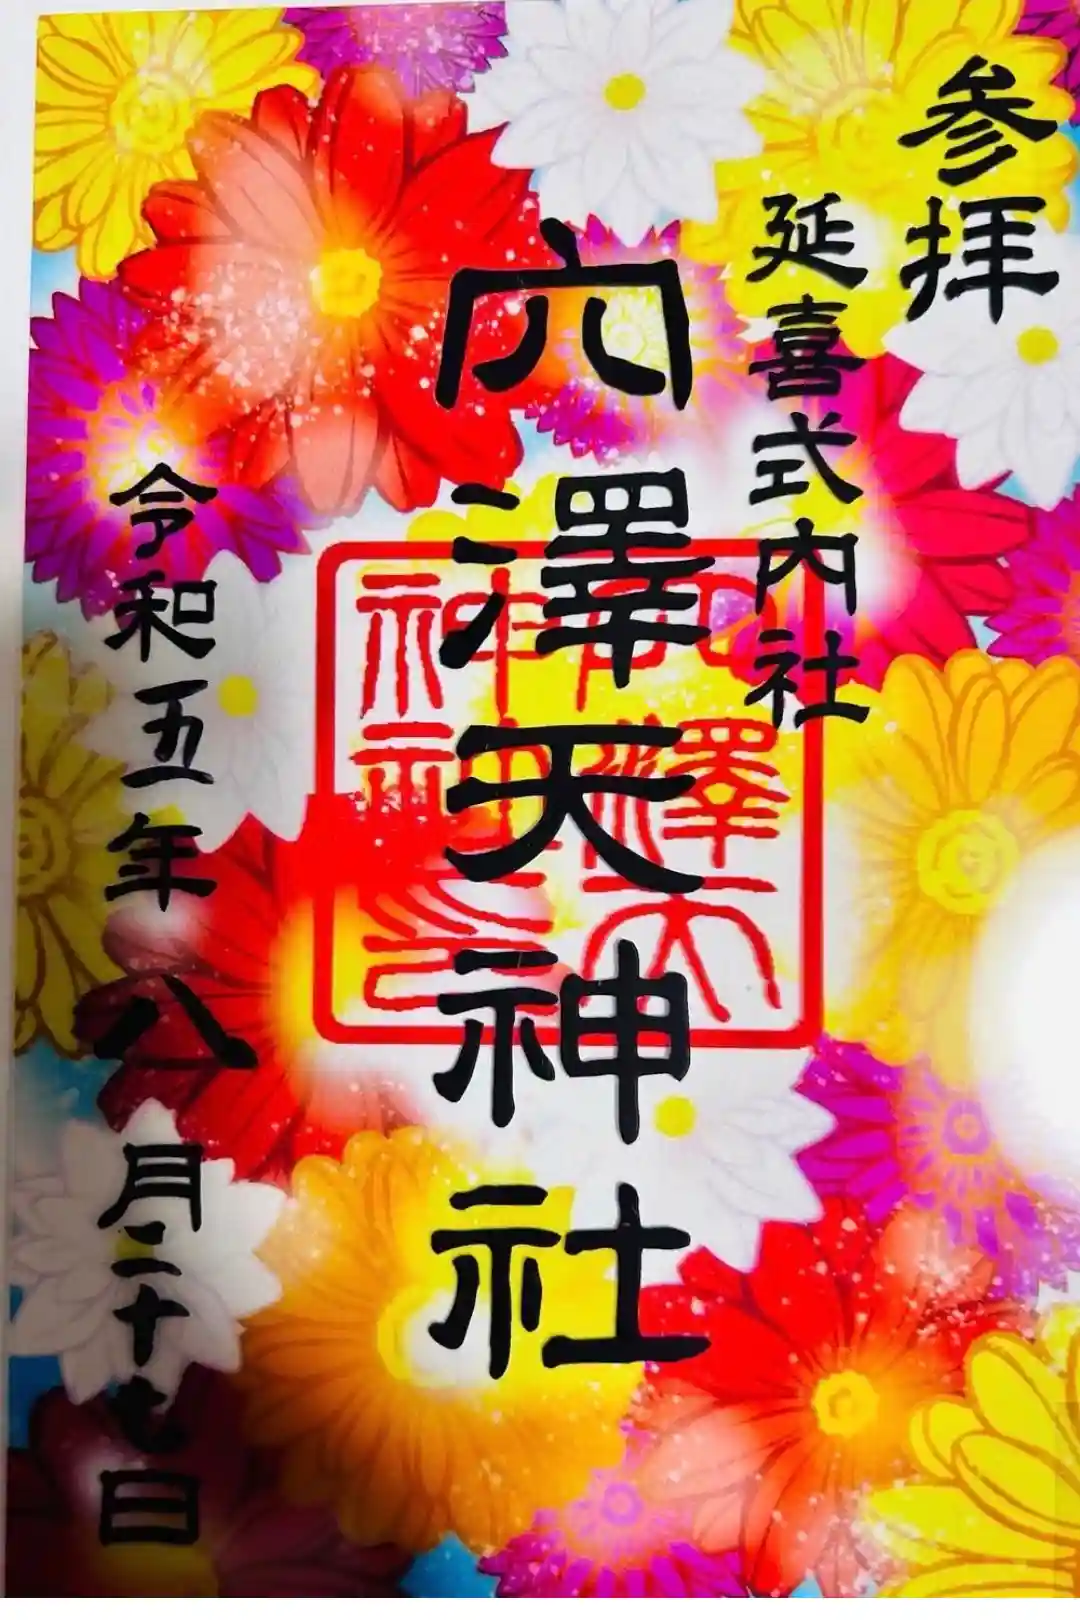 参拝
延喜式内社
穴澤天神社
令和五年八月二十七日
穴澤天
神社
神之